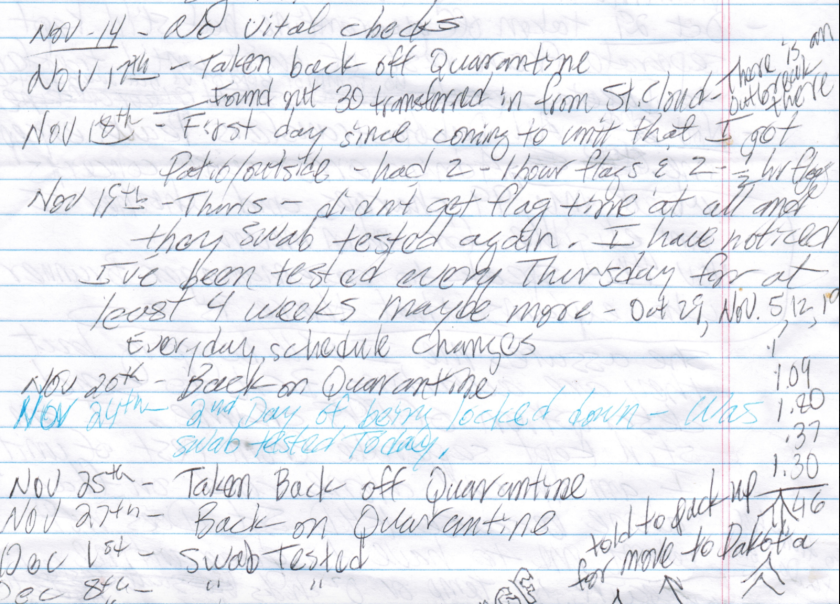 Nov 14 - No vital checks
Nov 17th - Taken back off Quarantine
Found out 30 transferred in from St. Cloud - There is an outbreak there
Nov 18th - First day since coming to unit that I got
Patio/outside - had 2 - 1 hour flags & 2 - hr flags
Nov 19th - Thurs - didn't get flag time at all and
they swab tested again. I have noticed
I've been tested every Thursday for at
least 4 weeks maybe more - Oct 29, Nov. 5, 12, 19
Everyday schedule changes
Nov 20th - Back on Quarantine
1.09
Nov 24th - 2nd Day of being locked down - Was
1.80
swab tested Today.
.37
1.30
Nov 25th - Taken Back off Quarantine
46
Nov 27th - Back on Quarantine
told to pack up
for move to Dakota
Dec 1st - Swab Tested
Dec 8th - " "